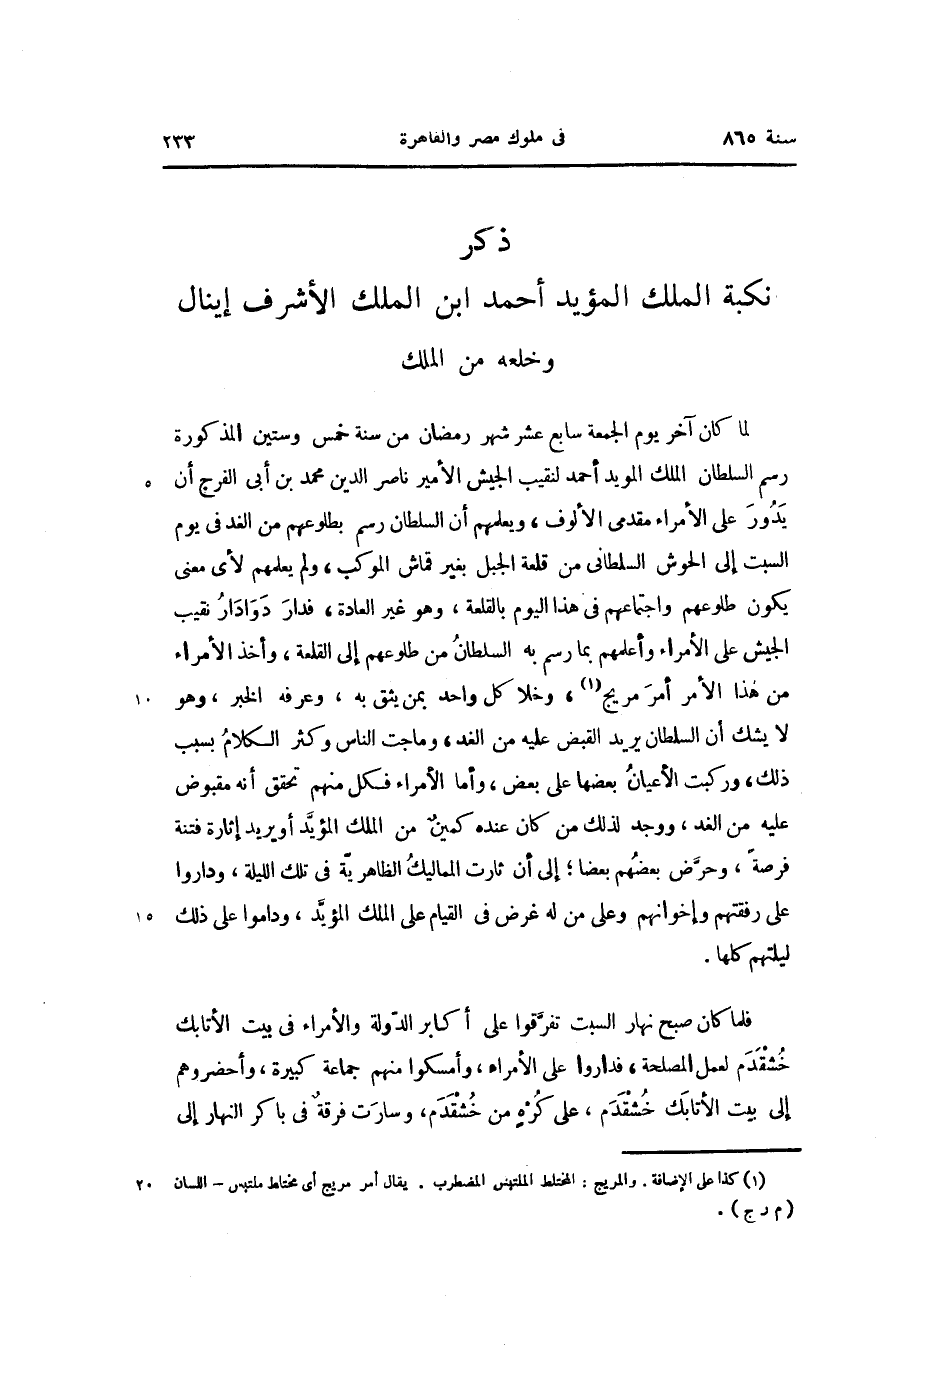 سنة ٨٦٥ فى ملوك مصر والقاهرة ٢٣٣
ذكر
نكبة الملك المؤيد أحمد ابن الملك الأشرف إينال
وخلعه من الملك
لما كان آخر يوم الجمعة سابع عشر شهر رمضان من سنة خمس وستين المذكورة
رسم السلطان الملك المويد أحمد لنقيب الجيش الأمير ناصر الدين محمد بن أبى الفرج أن ٥
يَدُورَ على الأمراء مقدمى الألوف ، ويعلمهم أن السلطان رسم بطلوعهم من الغد فى يوم
السبت إلى الحوش السلطانى من قلعة الجبل بغير قماش الموكب ، ولم يعلمهم لأى معنى
يكون طلوعهم واجتماعهم فى هذا اليوم بالقلعة ، وهو غير العادة ، فدارَ دَوَادَارُ نقيب
الجيش على الأمراء وأعلمهم بما رسم به السلطانُ من طلوعهم إلى القلعة ، وأخذ الأمراء
من هذا الأمر أمرَ مريج(١) ، وخلا كل واحد بمن يثق به ، وعرفه الخبر ، وهو ١٠
لا يشك أن السلطان يريد القبض عليه من الغد ، وماجت الناس وكثر الكلامُ بسبب
ذلك ، وركبت الأعيانُ بعضها على بعض ، وأما الأمراء فكل منهم تحقق أنه مقبوض
عليه من الغد ، ووجد لذلك من كان عنده كمينٌ من الملك المؤيَّد أو يريد إثارة فتنة
فرصةً ، وحرَّض بعضُهم بعضا ؛ إلى أن ثارت المماليكُ الظاهريّة فى تلك الليلة ، وداروا
على رفقتهم وإخوانهم وعلى من له غرض فى القيام على الملك المؤيَّد ، وداموا على ذلك ١٥
ليلتهم كلها .
فلما كان صبح نهار السبت تفرَّقوا على أكابر الدّولة والأمراء فى بيت الأتابك
خُشْقَدَم لعمل المصلحة ، فداروا على الأمراء ، وأمسكوا منهم جماعة كبيرة ، وأحضروهم
إلى بيت الأتابَك خُشْقَدَم ، على كُرْهٍ من خُشْقَدَم، وسارَت فرقةٌ فى باكر النهار إلى
(١) كذا على الإضافة . والمريج : المختلط الملتبس المضطرب . يقال أمر مريج أى مختلط ملتبس – اللسان ٢٠
(م ر ج) .